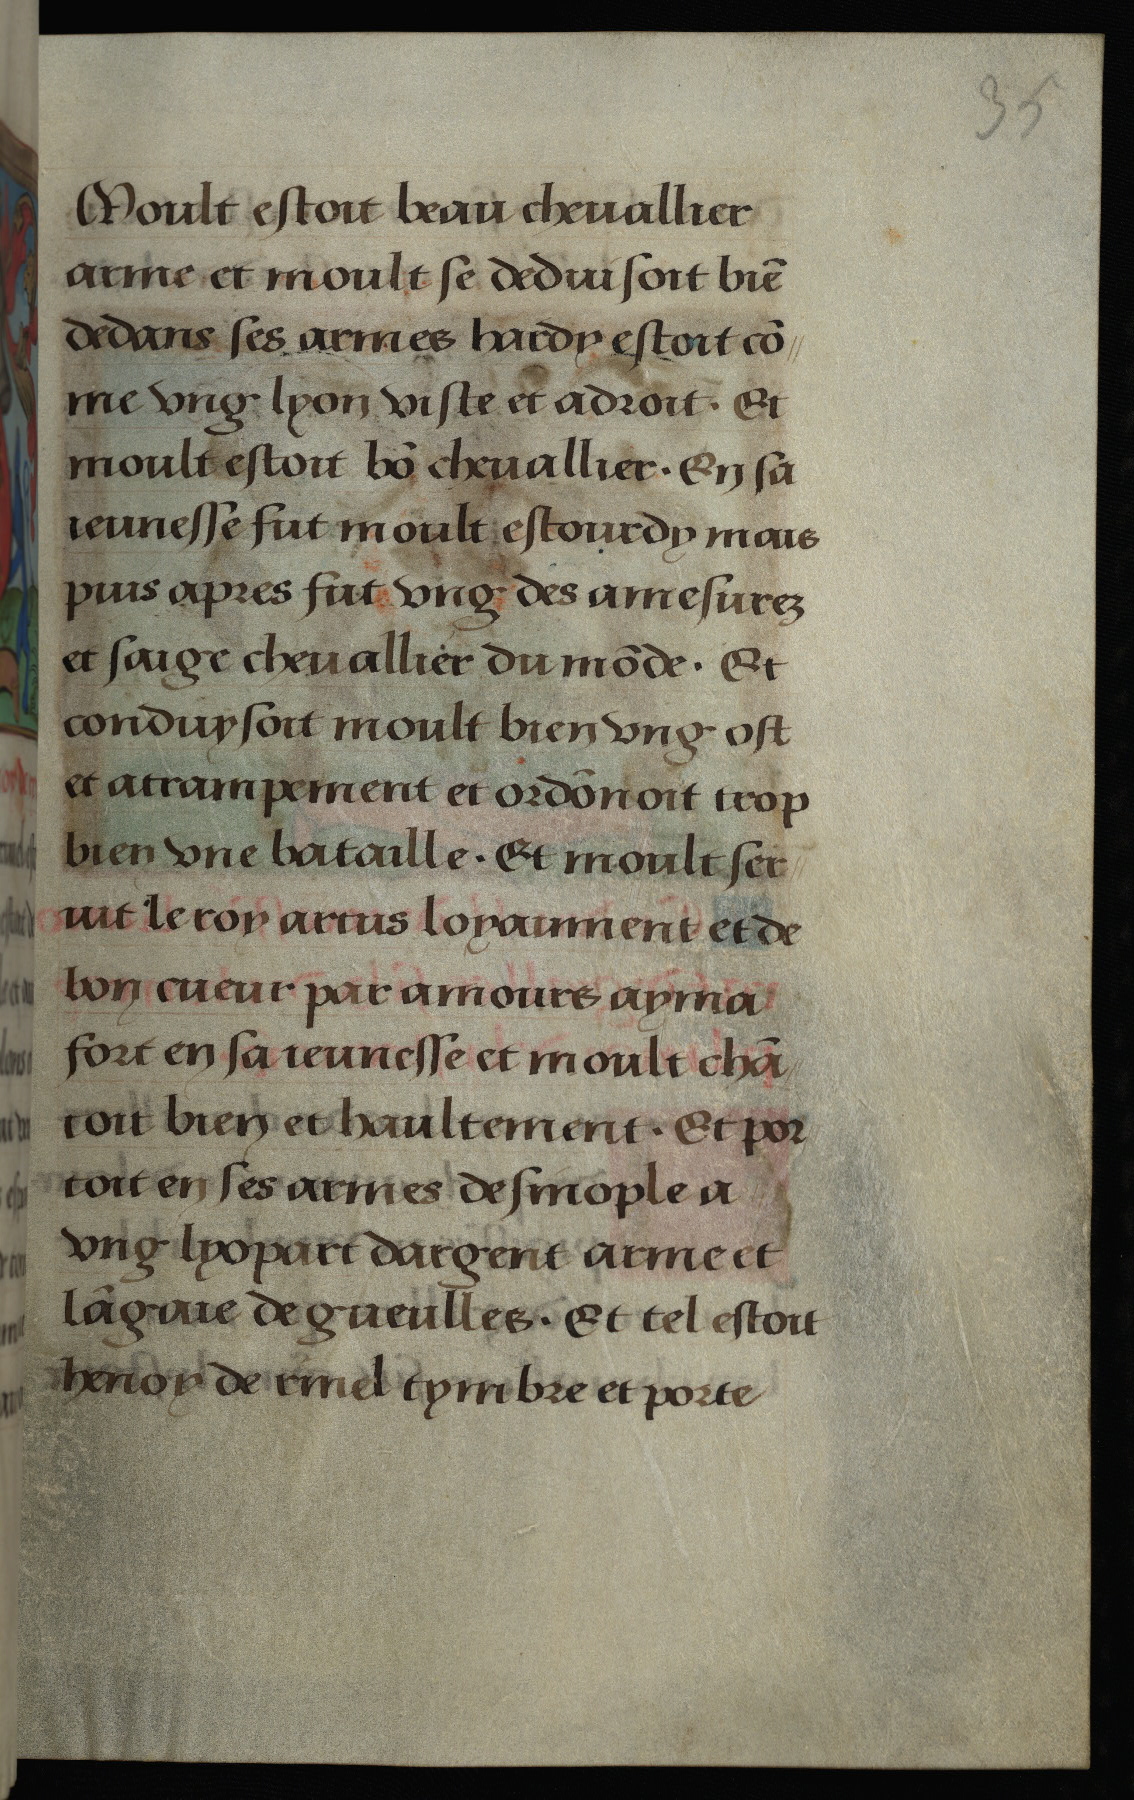 35
Moult estoit beau cheuallier
arme et moult se deduisoit biē
dedans ses armes hardy estoit cō//
me vng lyon viste et adroit. Et
moult estoit bō cheuallier. En sa
ieunesse fut moult estourdy mais
puis apres fut vng des amesurez
et saige cheuallier du mōde. Et
conduysoit moult bien vng ost
et atrampement et ordōnoit trop
bien vne bataille. Et moult ser//
uit le roy artus loyaument et de
bon cueur par amours ayma
fort en sa ieunesse et moult chā//
toit bien et haultement. Et por
toit en ses armes de sinople a
vng lyopart dargent arme et
lāgue de gueulles. Et tel estoit
henoy de rinel tymbre et porte